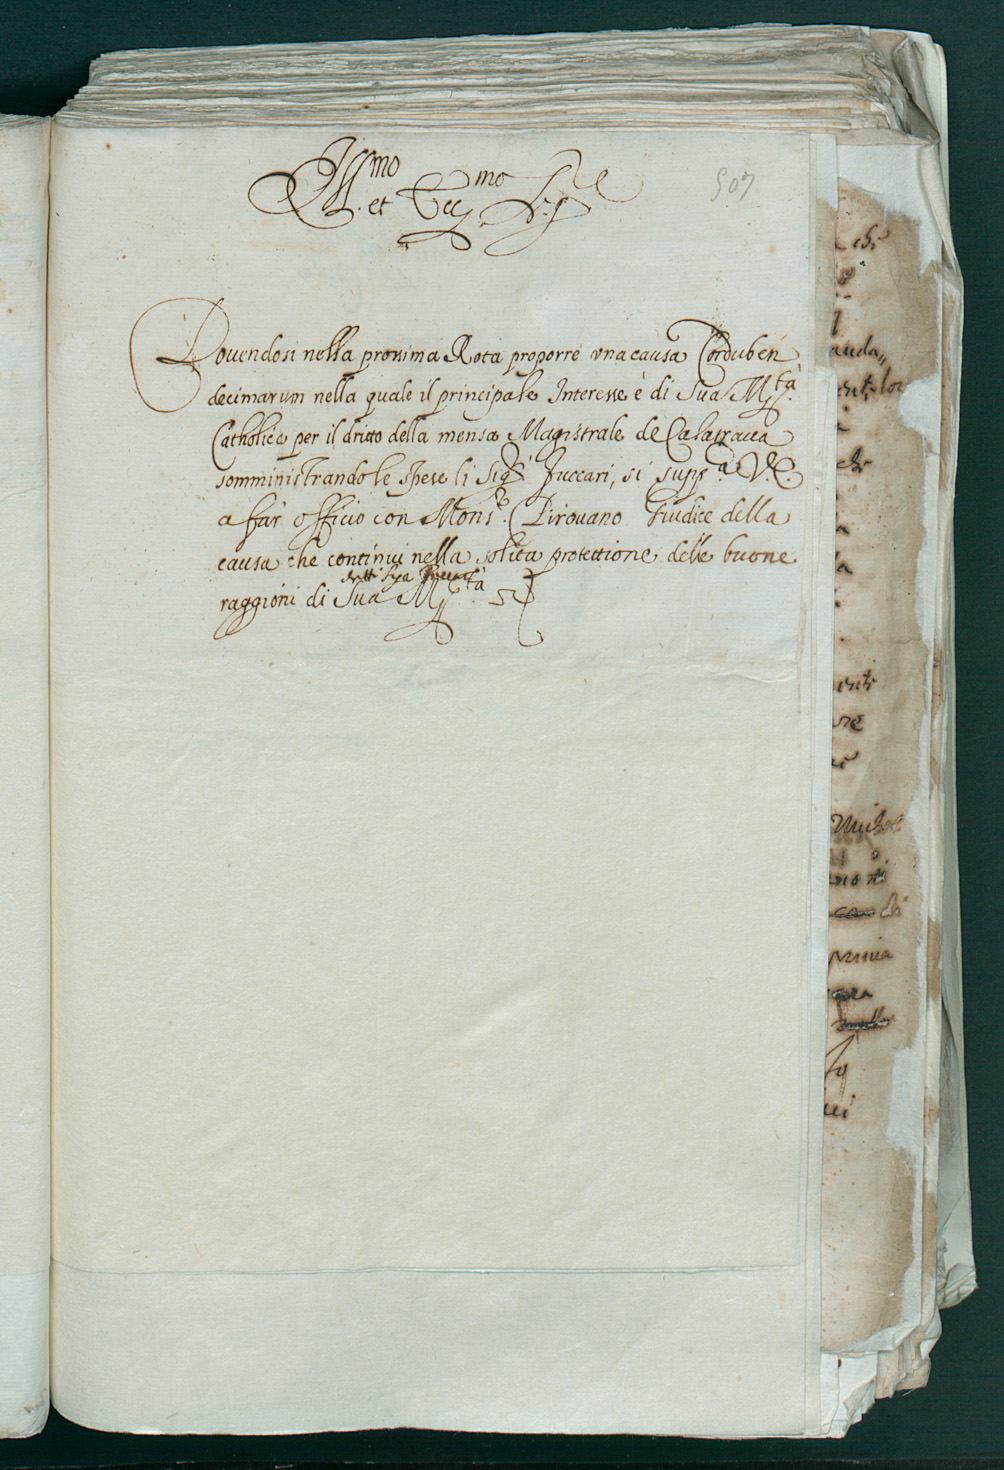 Ill.mo et Ecc.mo Sig.re
507
Douendosi nella prossima Rota proporre una causa Corduben
decimarum nella quale il principale Interesse è di Sua M.tà
Catholica per il dritto della mensa Magistrale de Calatraua
somministrando le spese li Sig.ri Zuccari, si supp.ca V.E.
a far officio con Mons.re Pirouano Giudice della
causa che continui nella solita protettione delle buone
raggioni di Sua M.tà